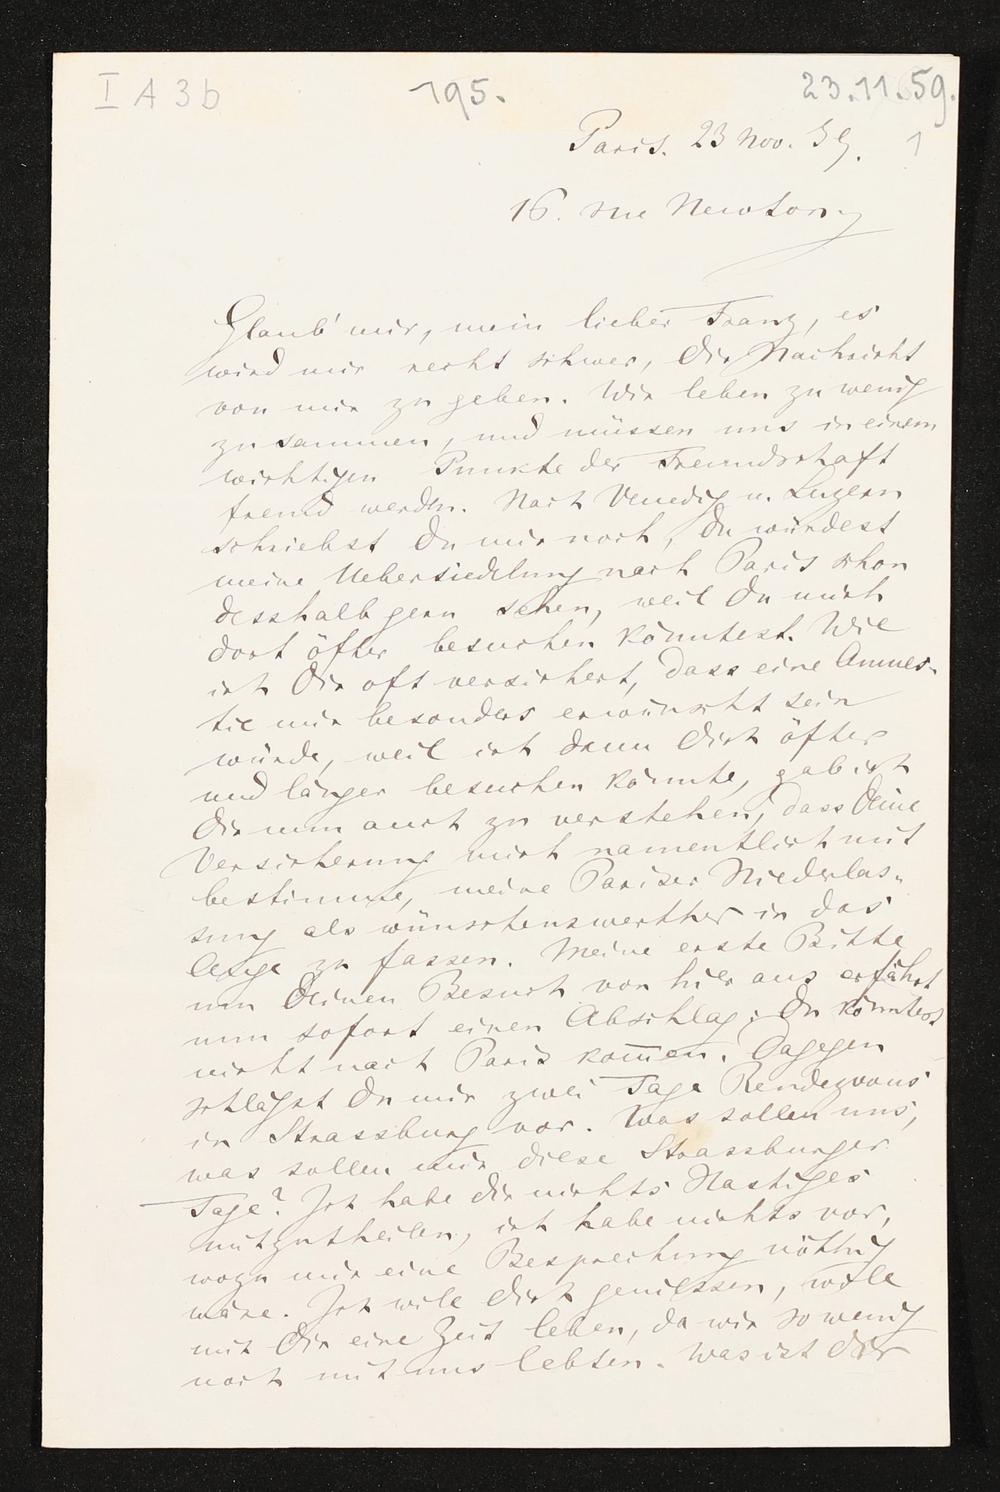 I A 3 b 195. 23.11.59.
Paris. 23 Nov. 59. 1
16. rue Newton
Glaub' mir, mein lieber Franz, es
wird mir recht schwer, Dir Nachricht
von mir zu geben. Wir leben zu wenig
zusammen, und müssen uns in einem
wichtigen Punkte der Freundschaft
fremd werden. Nach Venedig u. Luzern
schriebst Du mir noch, Du würdest
meine Uebersiedelung nach Paris schon
desshalb gern sehen, weil Du mich
dort öfter besuchen könntest. Wie
ich Dir oft versichert, dass eine Amnes-
tie mir besonders erwünscht sein
würde, weil ich dann Dich öfter
und länger besuchen könnte, gab ich
Dir nun auch zu verstehen, dass Deine
Versicherung mich namentlich mit
bestimme, meine Pariser Niederlas-
sung als wünschenswerther in das
Auge zu fassen. Meine erste Bitte
um Deinen Besuch von hier aus erfährt
nun sofort einen Abschlag: Du könntest
nicht nach Paris kom̅en. Dagegen
schlägst Du mir zwei Tage Rendezvous
in Strassburg vor. Was sollen uns,
was sollen mir diese Strassburger
Tage? Ich habe Dir nichts Hastiges
mitzutheilen, ich habe nichts vor,
wozu mir eine Besprechung nöthig
wäre. Ich will Dich geniessen, will
mit Dir eine Zeit leben, da wir so wenig
noch mit uns lebten. Was ist Dir